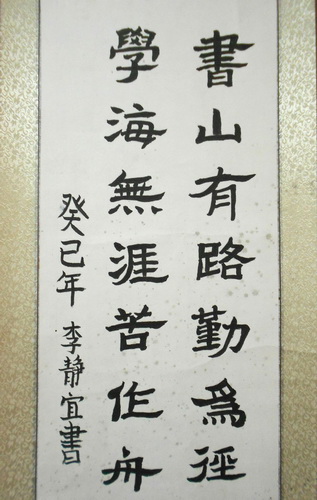 書山有路勤為徑
學海無涯苦作舟
癸巳年 李靜宜書